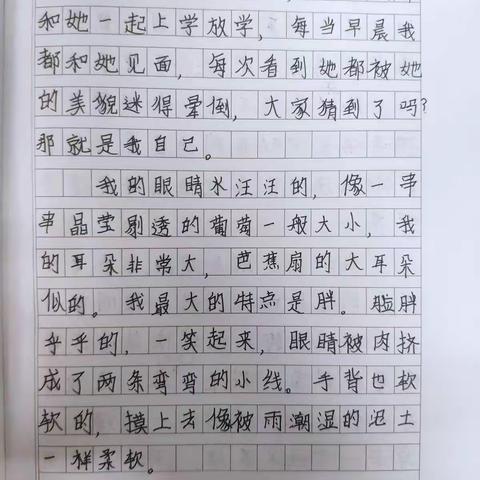 和她一起上学放学，每当早晨我
都和她见面，每次看到她都被她
的美貌迷得晕倒，大家猜到了吗？
那就是我自己。
我的眼睛水汪汪的，像一串
串晶莹剔透的葡萄一般大小，我
的耳朵非常大，芭蕉扇的大耳朵
似的。我最大的特点是胖。脸胖
乎乎的，一笑起来，眼睛被肉挤
成了两条弯弯的小线。手背也软
软的，摸上去像被雨潮湿的泥土
一样柔软。